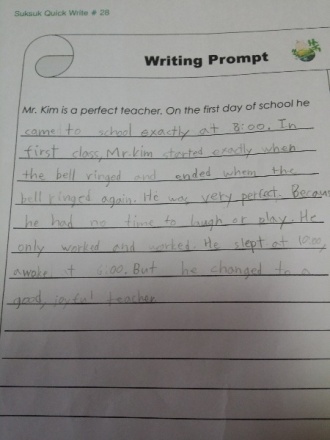 Suksuk Quick Write # 28
Writing Prompt
Mr. Kim is a perfect teacher. On the first day of school he
came to school exactly at 8:00. In
first class, Mr.kim started exactly when
the bell ringed and ended when the
bell ringed again. He was very perfect. Becaus
he had no time to laugh or play. He
only worked and worked. He slept at 10:00,
awoke at 6:00. But he changed to a
good, joyful teacher